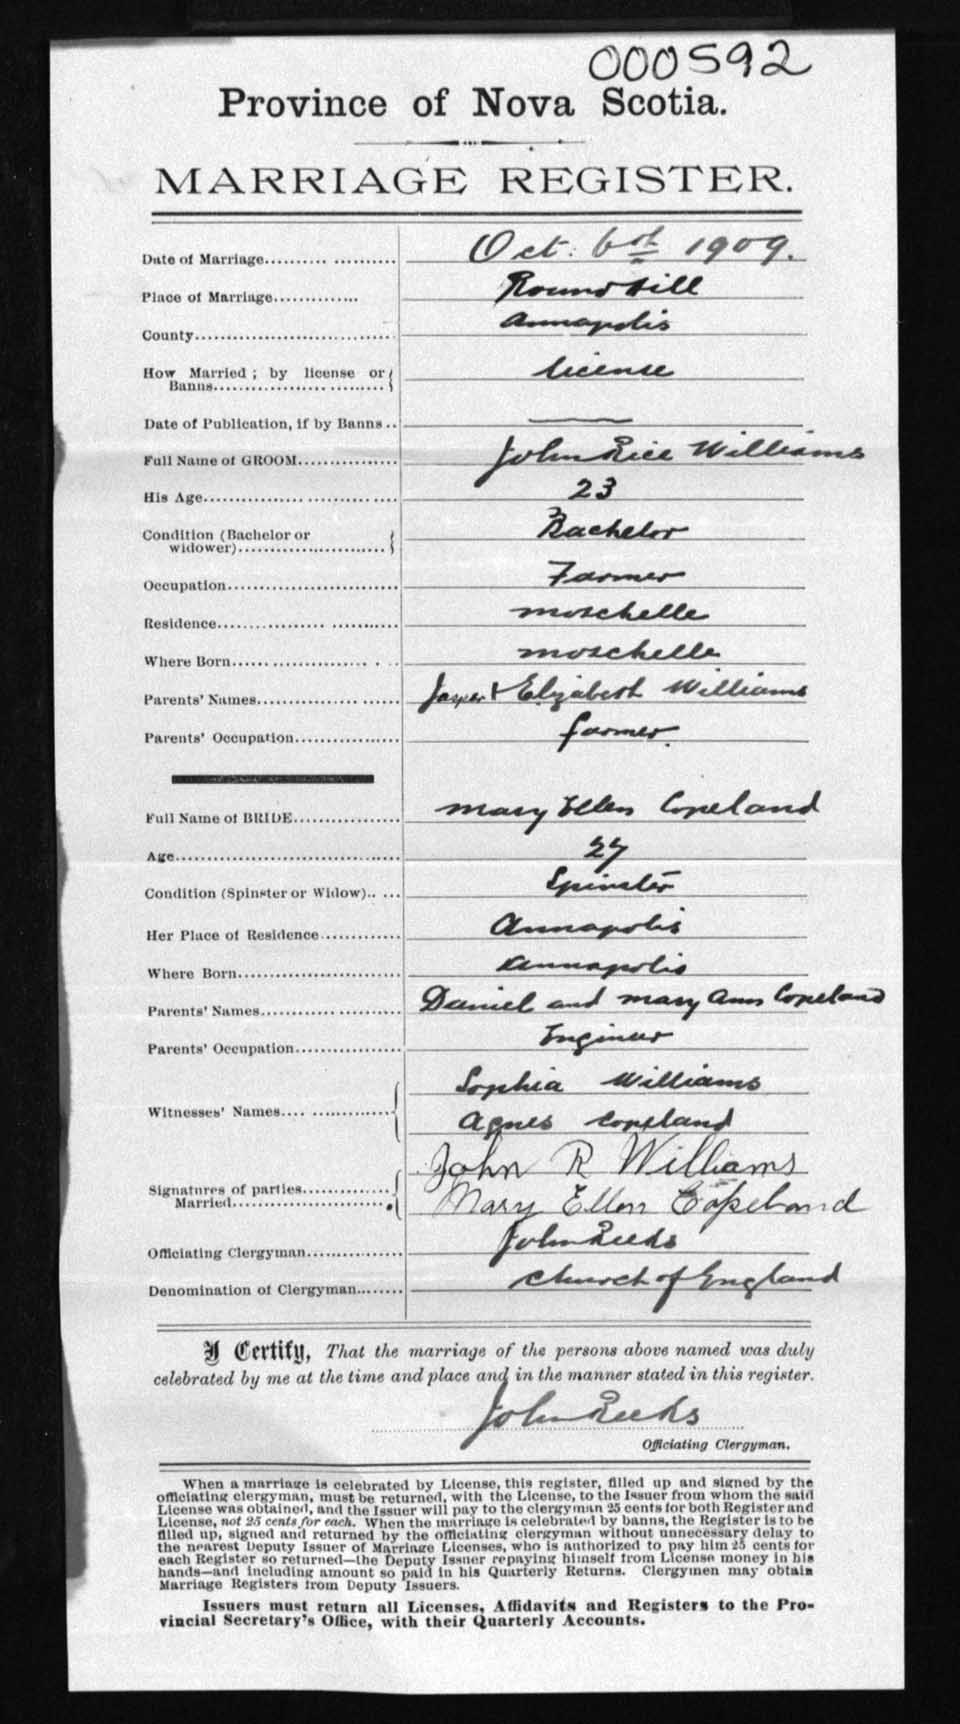 000592
Province of Nova Scotia.
MARRIAGE REGISTER.
Date of Marriage Oct. 6th 1909.
Place of Marriage Round Hill
County Annapolis
How Married ; by license or Banns license
Date of Publication, if by Banns ——
Full Name of GROOM John Rice Williams
His Age 23
Condition (Bachelor or widower) Bachelor
Occupation Farmer
Residence moschelle
Where Born moschelle
Parents' Names Jasper & Elizabeth Williams
Parents' Occupation farmer
Full Name of BRIDE mary Ellen Copeland
Age 27
Condition (Spinster or Widow) Spinster
Her Place of Residence Annapolis
Where Born Annapolis
Parents' Names Daniel and mary Ann Copeland
Parents' Occupation Engineer
Witnesses' Names Sophia Williams
Agnes Copeland
Signatures of parties Married John R Williams
Mary Ellen Copeland
Officiating Clergyman John Reeks
Denomination of Clergyman Church of England
I Certify, That the marriage of the persons above named was duly
celebrated by me at the time and place and in the manner stated in this register.
John Reeks
Officiating Clergyman.
When a marriage is celebrated by License, this register, filled up and signed by the
officiating clergyman, must be returned, with the License, to the Issuer from whom the said
License was obtained, and the Issuer will pay to the clergyman 25 cents for both Register and
License, not 25 cents for each. When the marriage is celebrated by banns, the Register is to be
filled up, signed and returned by the officiating clergyman without unnecessary delay to
the nearest Deputy Issuer of Marriage Licenses, who is authorized to pay him 25 cents for
each Register so returned—the Deputy Issuer repaying himself from License money in his
hands—and including amount so paid in his Quarterly Returns. Clergymen may obtain
Marriage Registers from Deputy Issuers.
Issuers must return all Licenses, Affidavits and Registers to the Pro-
vincial Secretary's Office, with their Quarterly Accounts.